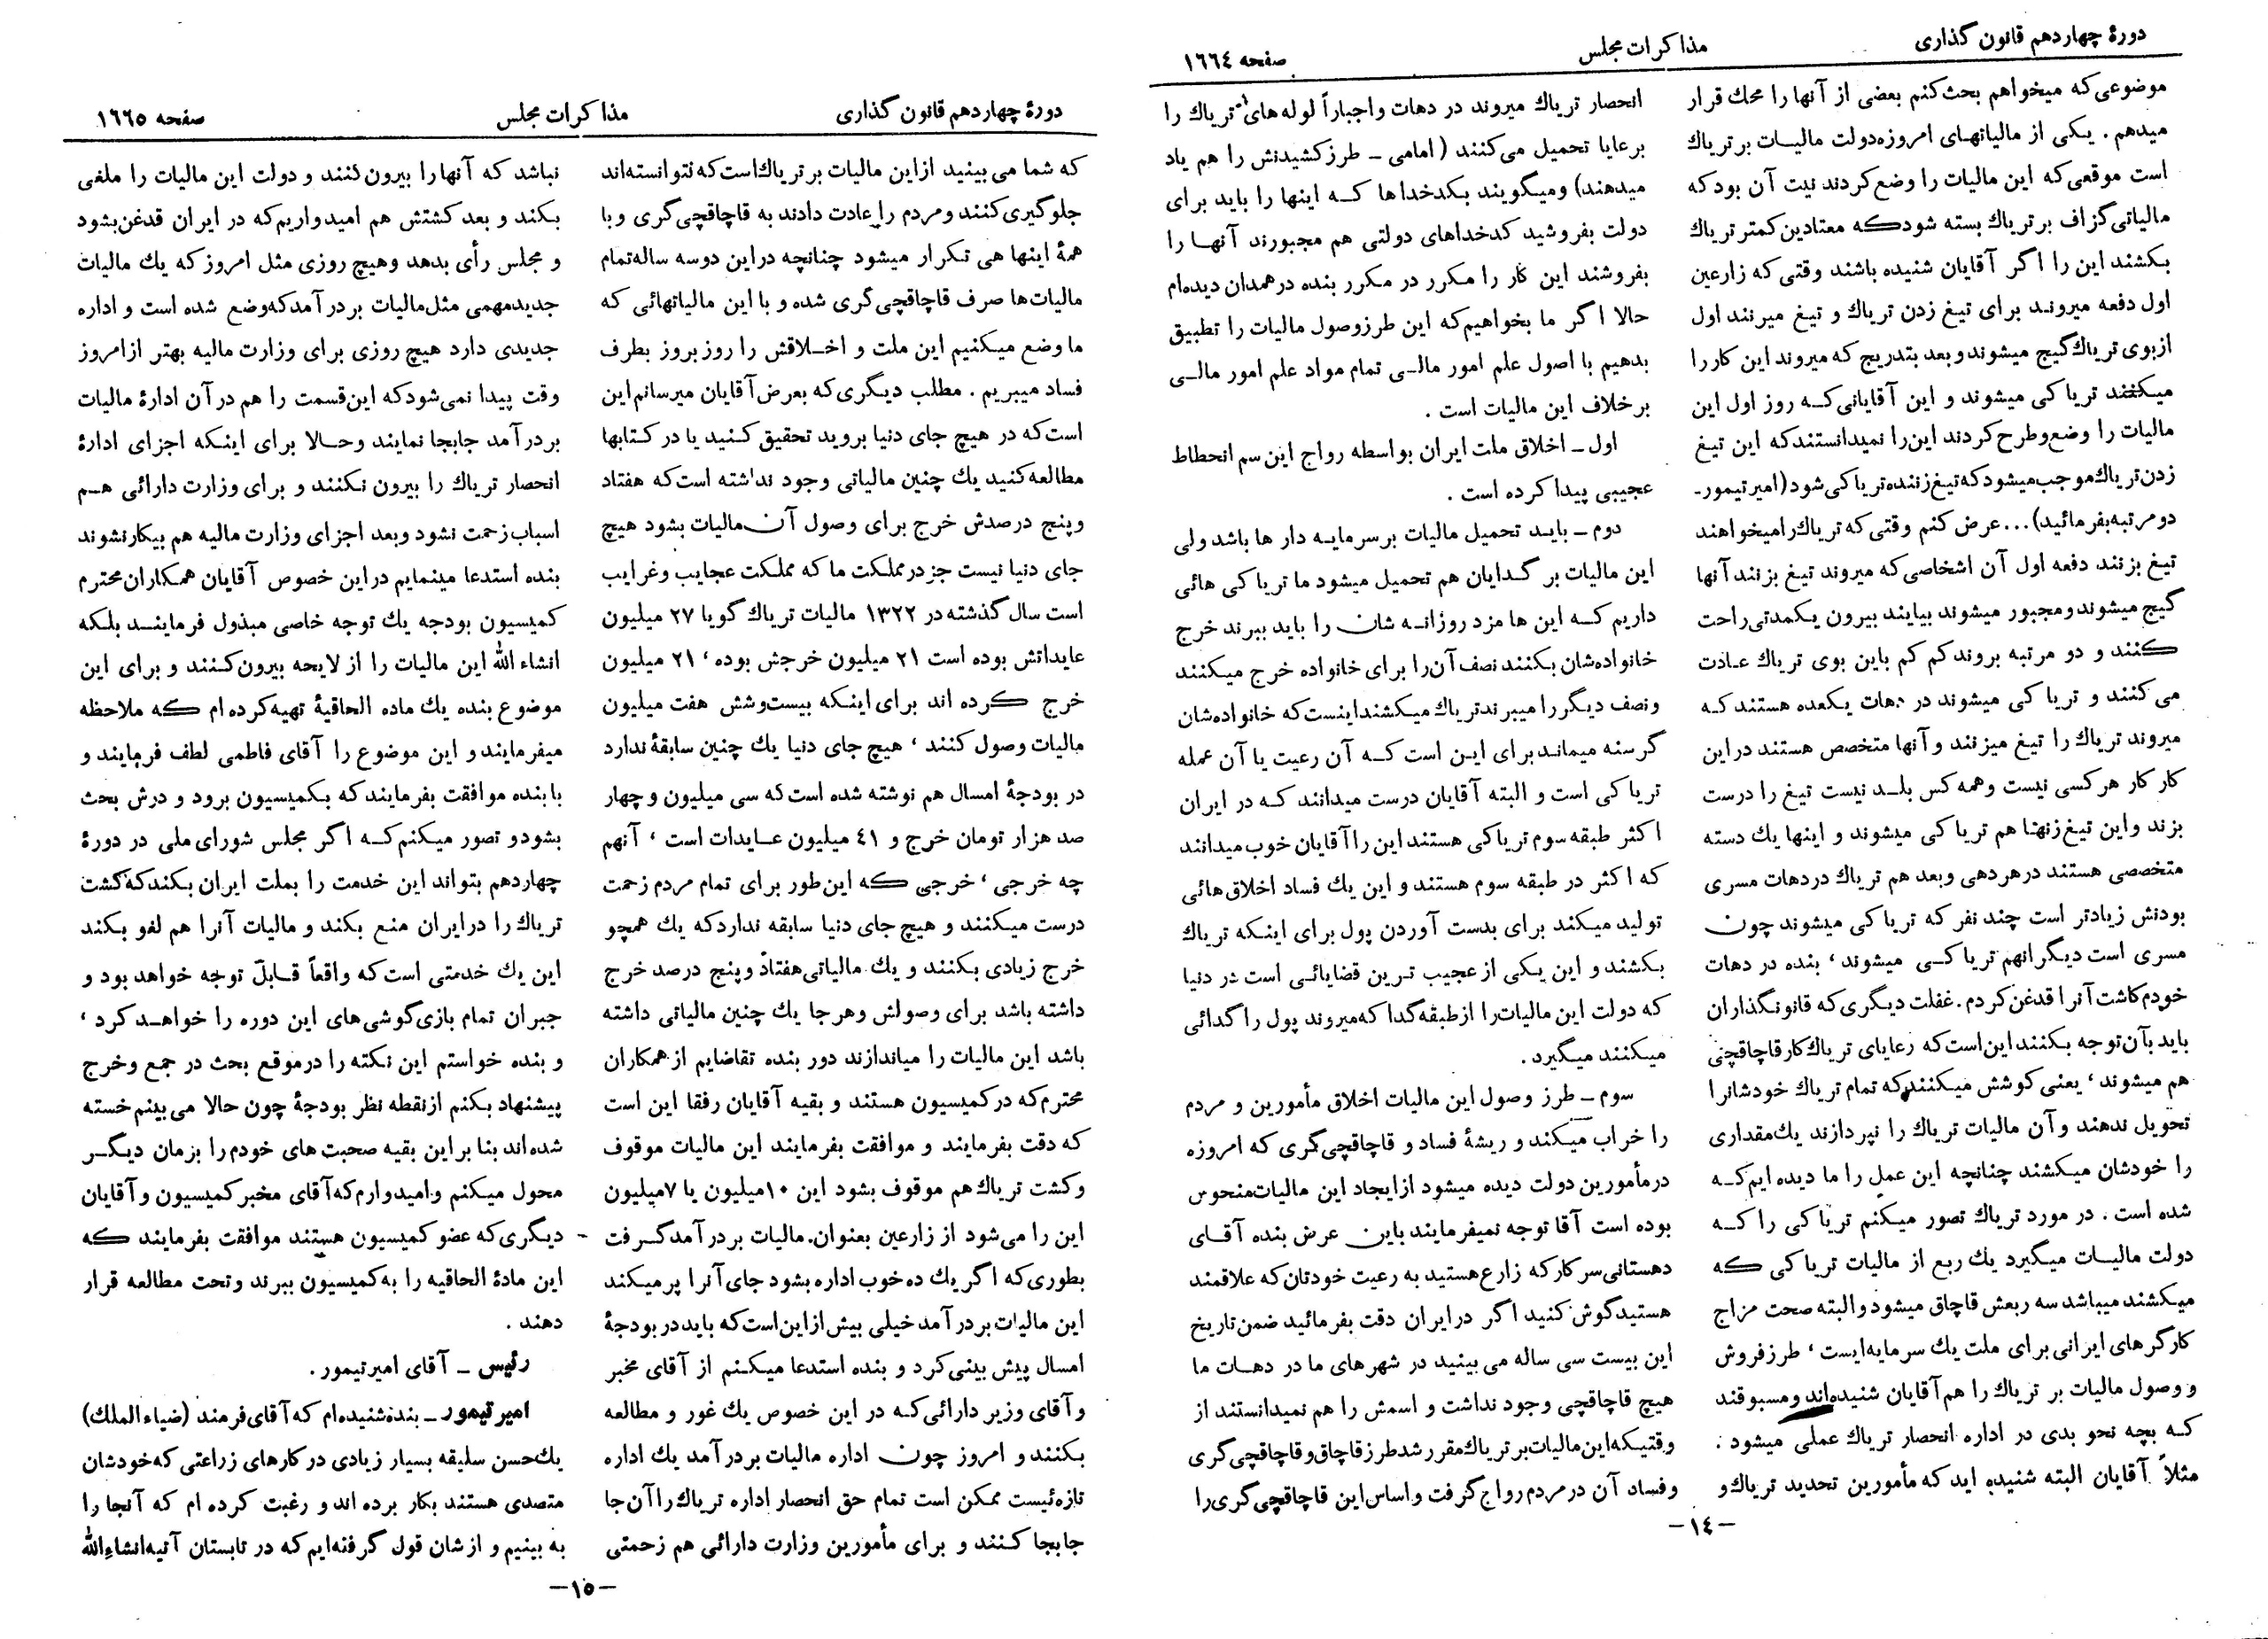 دورهٔ چهاردهم قانون گذاری
مذاکرات مجلس
صفحه ١٦٦٤
موضوعی که میخواهم بحث کنم بعضی از آنها را محك قرار
میدهم . یکی از مالیاتهای امروزه دولت مالیات بر تریاك
است موقعی که این مالیات را وضع کردند نیت آن بود که
مالیاتی گزاف بر تریاك بسته شود که معتادین کمتر تریاك
بکشند این را اگر آقایان شنیده باشند وقتی که زارعین
اول دفعه میروند برای تیغ زدن تریاك و تیغ میزنند اول
از بوی تریاك گیج میشوند و بعد بتدریج که میروند این کار را
میکنند تریاکی میشوند و این آقایانی که روز اول این
مالیات را وضع و طرح کردند این را نمیدانستند که این تیغ
زدن تریاك موجب میشود که تیغ زننده تریاکی شود (امیر تیمور-
دو مرتبه بفرمائید) ... عرض کنم وقتی که تریاك را میخواهند
تیغ بزنند دفعه اول آن اشخاصی که میروند تیغ بزنند آنها
گیج میشوند و مجبور میشوند بیایند بیرون یکمدتی راحت
کنند و دو مرتبه بروند کم کم باین بوی تریاك عادت
می کنند و تریاکی میشوند در دهات یکعده هستند که
میروند تریاك را تیغ میزنند و آنها متخصص هستند در این
کار کار هر کسی نیست و همه کس بلد نیست تیغ را درست
بزند و این تیغ زنها هم تریاکی میشوند و اینها یك دسته
متخصصی هستند در هر دهی و بعد هم تریاك در دهات مسری
بودنش زیادتر است چند نفر که تریاکی میشوند چون
مسری است دیگرانهم تریاکی میشوند ، بنده در دهات
خودم کاشت آنرا قدغن کردم . غفلت دیگری که قانونگذاران
باید بآن توجه بکنند این است که رعایای تریاك کار قاچاقچی
هم میشوند ، یعنی کوشش میکنند که تمام تریاك خودشانرا
تحویل ندهند و آن مالیات تریاك را نپردازند یك مقداری
را خودشان میکشند چنانچه این عمل را ما دیده ایم که
شده است . در مورد تریاك تصور میکنم تریاکی را که
دولت مالیات میگیرد یك ربع از مالیات تریاکی که
میکشند میباشد سه ربعش قاچاق میشود و البته صحت مزاج
کارگر های ایرانی برای ملت یك سرمایه ایست ، طرز فروش
و وصول مالیات بر تریاك را هم آقایان شنیده اند و مسبوقند
که بچه نحو بدی در اداره انحصار تریاك عملی میشود .
مثلاً آقایان البته شنیده اید که مأمورین تحدید تریاك و
انحصار تریاك میروند در دهات و اجباراً لوله های تریاك را
برعایا تحمیل می کنند ( امامی - طرز کشیدنش را هم یاد
میدهند) و میگویند بکدخداها که اینها را باید برای
دولت بفروشید کدخداهای دولتی هم مجبورند آنها را
بفروشند این کار را مکرر در مکرر بنده در همدان دیده ام
حالا اگر ما بخواهیم که این طرز وصول مالیات را تطبیق
بدهیم با اصول علم امور مالی تمام مواد علم امور مالی
بر خلاف این مالیات است .
اول - اخلاق ملت ایران بواسطه رواج این سم انحطاط
عجیبی پیدا کرده است .
دوم - باید تحمیل مالیات بر سرمایه دار ها باشد ولی
این مالیات بر گدایان هم تحمیل میشود ما تریاکی هائی
داریم که این ها مزد روزانه شان را باید ببرند خرج
خانواده شان بکنند نصف آن را برای خانواده خرج میکنند
و نصف دیگر را میبرند تریاك میکشند اینست که خانواده شان
گرسنه میماند برای این است که آن رعیت یا آن عمله
تریاکی است و البته آقایان درست میدانند که در ایران
اکثر طبقه سوم تریاکی هستند این را آقایان خوب میدانند
که اکثر در طبقه سوم هستند و این یك فساد اخلاق هائی
تولید میکند برای بدست آوردن پول برای اینکه تریاك
بکشند و این یکی از عجیب ترین قضایائی است در دنیا
که دولت این مالیات را از طبقه گدا که میروند پول را گدائی
میکنند میگیرد .
سوم - طرز وصول این مالیات اخلاق مأمورین و مردم
را خراب میکند و ریشهٔ فساد و قاچاقچی گری که امروزه
در مأمورین دولت دیده میشود از ایجاد این مالیات منحوس
بوده است آقا توجه نمیفرمایند باین عرض بنده آقای
دهستانی سرکار که زارع هستید به رعیت خودتان که علاقمند
هستید گوش کنید اگر در ایران دقت بفرمائید ضمن تاریخ
این بیست سی ساله می بینید در شهر های ما در دهات ما
هیچ قاچاقچی وجود نداشت و اسمش را هم نمیدانستند از
وقتیکه این مالیات بر تریاك مقرر شد طرز قاچاق و قاچاقچی گری
و فساد آن در مردم رواج گرفت و اساس این قاچاقچی گری را
-١٤-
دورهٔ چهاردهم قانون گذاری
مذاکرات مجلس
صفحه ١٦٦٥
که شما می بینید از این مالیات بر تریاك است که نتوانسته اند
جلوگیری کنند و مردم را عادت دادند به قاچاقچی گری و با
همهٔ اینها هی تکرار میشود چنانچه در این دو سه ساله تمام
مالیات ها صرف قاچاقچی گری شده و با این مالیاتهائی که
ما وضع میکنیم این ملت و اخلاقش را روز بروز بطرف
فساد میبریم . مطلب دیگری که بعرض آقایان میرسانم این
است که در هیچ جای دنیا بروید تحقیق کنید یا در کتابها
مطالعه کنید یك چنین مالیاتی وجود نداشته است که هفتاد
و پنج درصدش خرج برای وصول آن مالیات بشود هیچ
جای دنیا نیست جز در مملکت ما که مملکت عجایب و غرایب
است سال گذشته در ١٣٢٢ مالیات تریاك گویا ٢٧ میلیون
عایداتش بوده است ٢١ میلیون خرجش بوده ، ٢١ میلیون
خرج کرده اند برای اینکه بیست و شش هفت میلیون
مالیات وصول کنند ، هیچ جای دنیا یك چنین سابقهٔ ندارد
در بودجهٔ امسال هم نوشته شده است که سی میلیون و چهار
صد هزار تومان خرج و ٤١ میلیون عایدات است ، آنهم
چه خرجی ، خرجی که این طور برای تمام مردم زحمت
درست میکنند و هیچ جای دنیا سابقه ندارد که یك همچو
خرج زیادی بکنند و یك مالیاتی هفتاد و پنج درصد خرج
داشته باشد برای وصولش و هر جا یك چنین مالیاتی داشته
باشد این مالیات را میاندازند دور بنده تقاضایم از همکاران
محترم که در کمیسیون هستند و بقیه آقایان رفقا این است
که دقت بفرمایند و موافقت بفرمایند این مالیات موقوف
و کشت تریاك هم موقوف بشود این ١٠ میلیون یا ٧ میلیون
این را می شود از زارعین بعنوان مالیات بر درآمد گرفت
بطوری که اگر یك ده خوب اداره بشود جای آنرا پر میکند
این مالیات بر درآمد خیلی بیش از این است که باید در بودجهٔ
امسال پیش بینی کرد و بنده استدعا میکنم از آقای مخبر
و آقای وزیر دارائی که در این خصوص یك غور و مطالعه
بکنند و امروز چون اداره مالیات بر درآمد یك اداره
تازه ئیست ممکن است تمام حق انحصار اداره تریاك را آن جا
جابجا کنند و برای مأمورین وزارت دارائی هم زحمتی
نباشد که آنها را بیرون کنند و دولت این مالیات را ملغی
بکند و بعد کشتش هم امیدواریم که در ایران قدغن بشود
و مجلس رأی بدهد و هیچ روزی مثل امروز که یك مالیات
جدید مهمی مثل مالیات بر درآمد که وضع شده است و اداره
جدیدی دارد هیچ روزی برای وزارت مالیه بهتر از امروز
وقت پیدا نمی شود که این قسمت را هم در آن ادارهٔ مالیات
بر درآمد جابجا نمایند و حالا برای اینکه اجزای ادارهٔ
انحصار تریاك را بیرون نکنند و برای وزارت دارائی هم
اسباب زحمت نشود و بعد اجزای وزارت مالیه هم بیکار نشوند
بنده استدعا مینمایم در این خصوص آقایان همکاران محترم
کمیسیون بودجه یك توجه خاصی مبذول فرمایند بلکه
انشاء الله این مالیات را از لایحه بیرون کنند و برای این
موضوع بنده یك ماده الحاقیهٔ تهیه کرده ام که ملاحظه
میفرمایند و این موضوع را آقای فاطمی لطف فرمایند و
با بنده موافقت بفرمایند که بکمیسیون برود و درش بحث
بشود و تصور میکنم که اگر مجلس شورای ملی در دورهٔ
چهاردهم بتواند این خدمت را بملت ایران بکند که کشت
تریاك را در ایران منع بکند و مالیات آنرا هم لغو بکند
این یك خدمتی است که واقعاً قابل توجه خواهد بود و
جبران تمام بازی گوشی های این دوره را خواهد کرد ،
و بنده خواستم این نکته را در موقع بحث در جمع و خرج
پیشنهاد بکنم از نقطه نظر بودجهٔ چون حالا می بینم خسته
شده اند بنا بر این بقیه صحبت های خودم را بزمان دیگر
محول میکنم و امیدوارم که آقای مخبر کمیسیون و آقایان
دیگری که عضو کمیسیون هستند موافقت بفرمایند که
این مادهٔ الحاقیه را به کمیسیون ببرند و تحت مطالعه قرار
دهند .
رئیس - آقای امیر تیمور .
امیر تیمور - بنده شنیده ام که آقای فرمند (ضیاء الملك)
یك حسن سلیقه بسیار زیادی در کارهای زراعتی که خودشان
متصدی هستند بکار برده اند و رغبت کرده ام که آنجا را
به بینیم و ازشان قول گرفته ایم که در تابستان آتیه انشاء الله
-١٥-